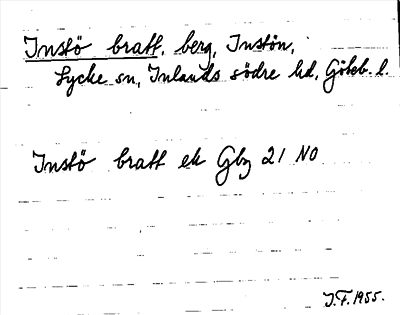 Instö bratt, berg, Instön,
Lycke sn, Inlands södre hd, Göteb. l.
Instö bratt ek Gbg 21 NO
J.F. 1955.